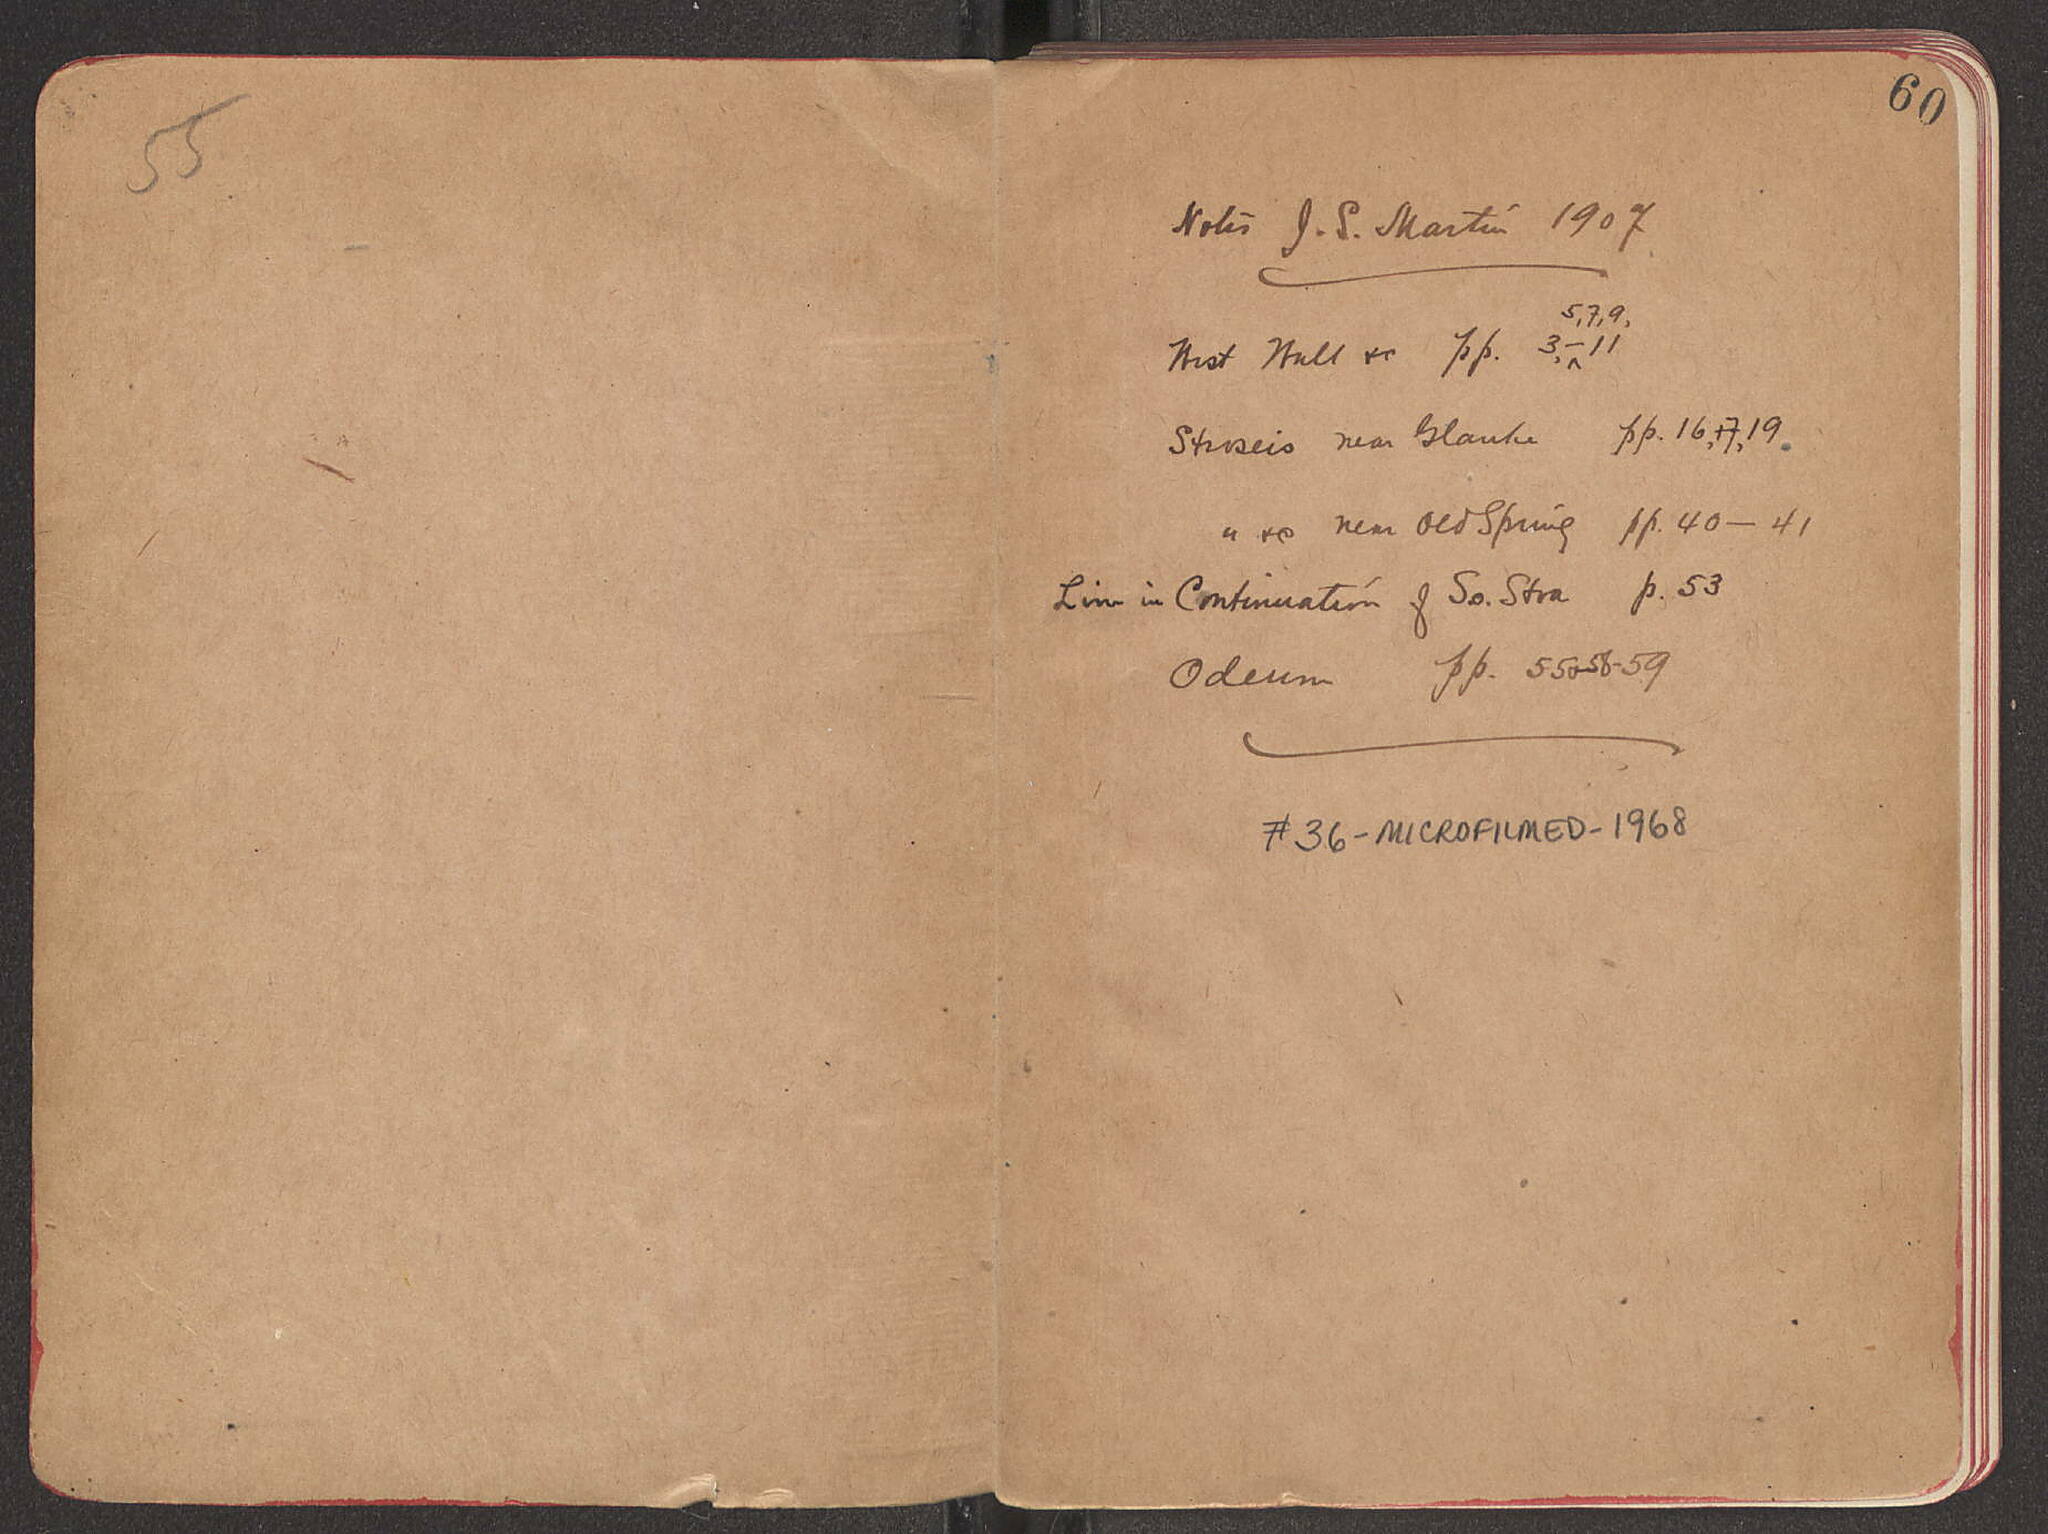 55
60
Notes J. S. Martin 1907
West Wall &c pp. 3, 5, 7, 9, -11
Stroseis near Glauke pp. 16, 17, 19.
" &c near Old Spring pp. 40 — 41
Line in Continuation of So. Stoa p. 53
Odeum pp. 55 58-59
#36-MICROFILMED-1968